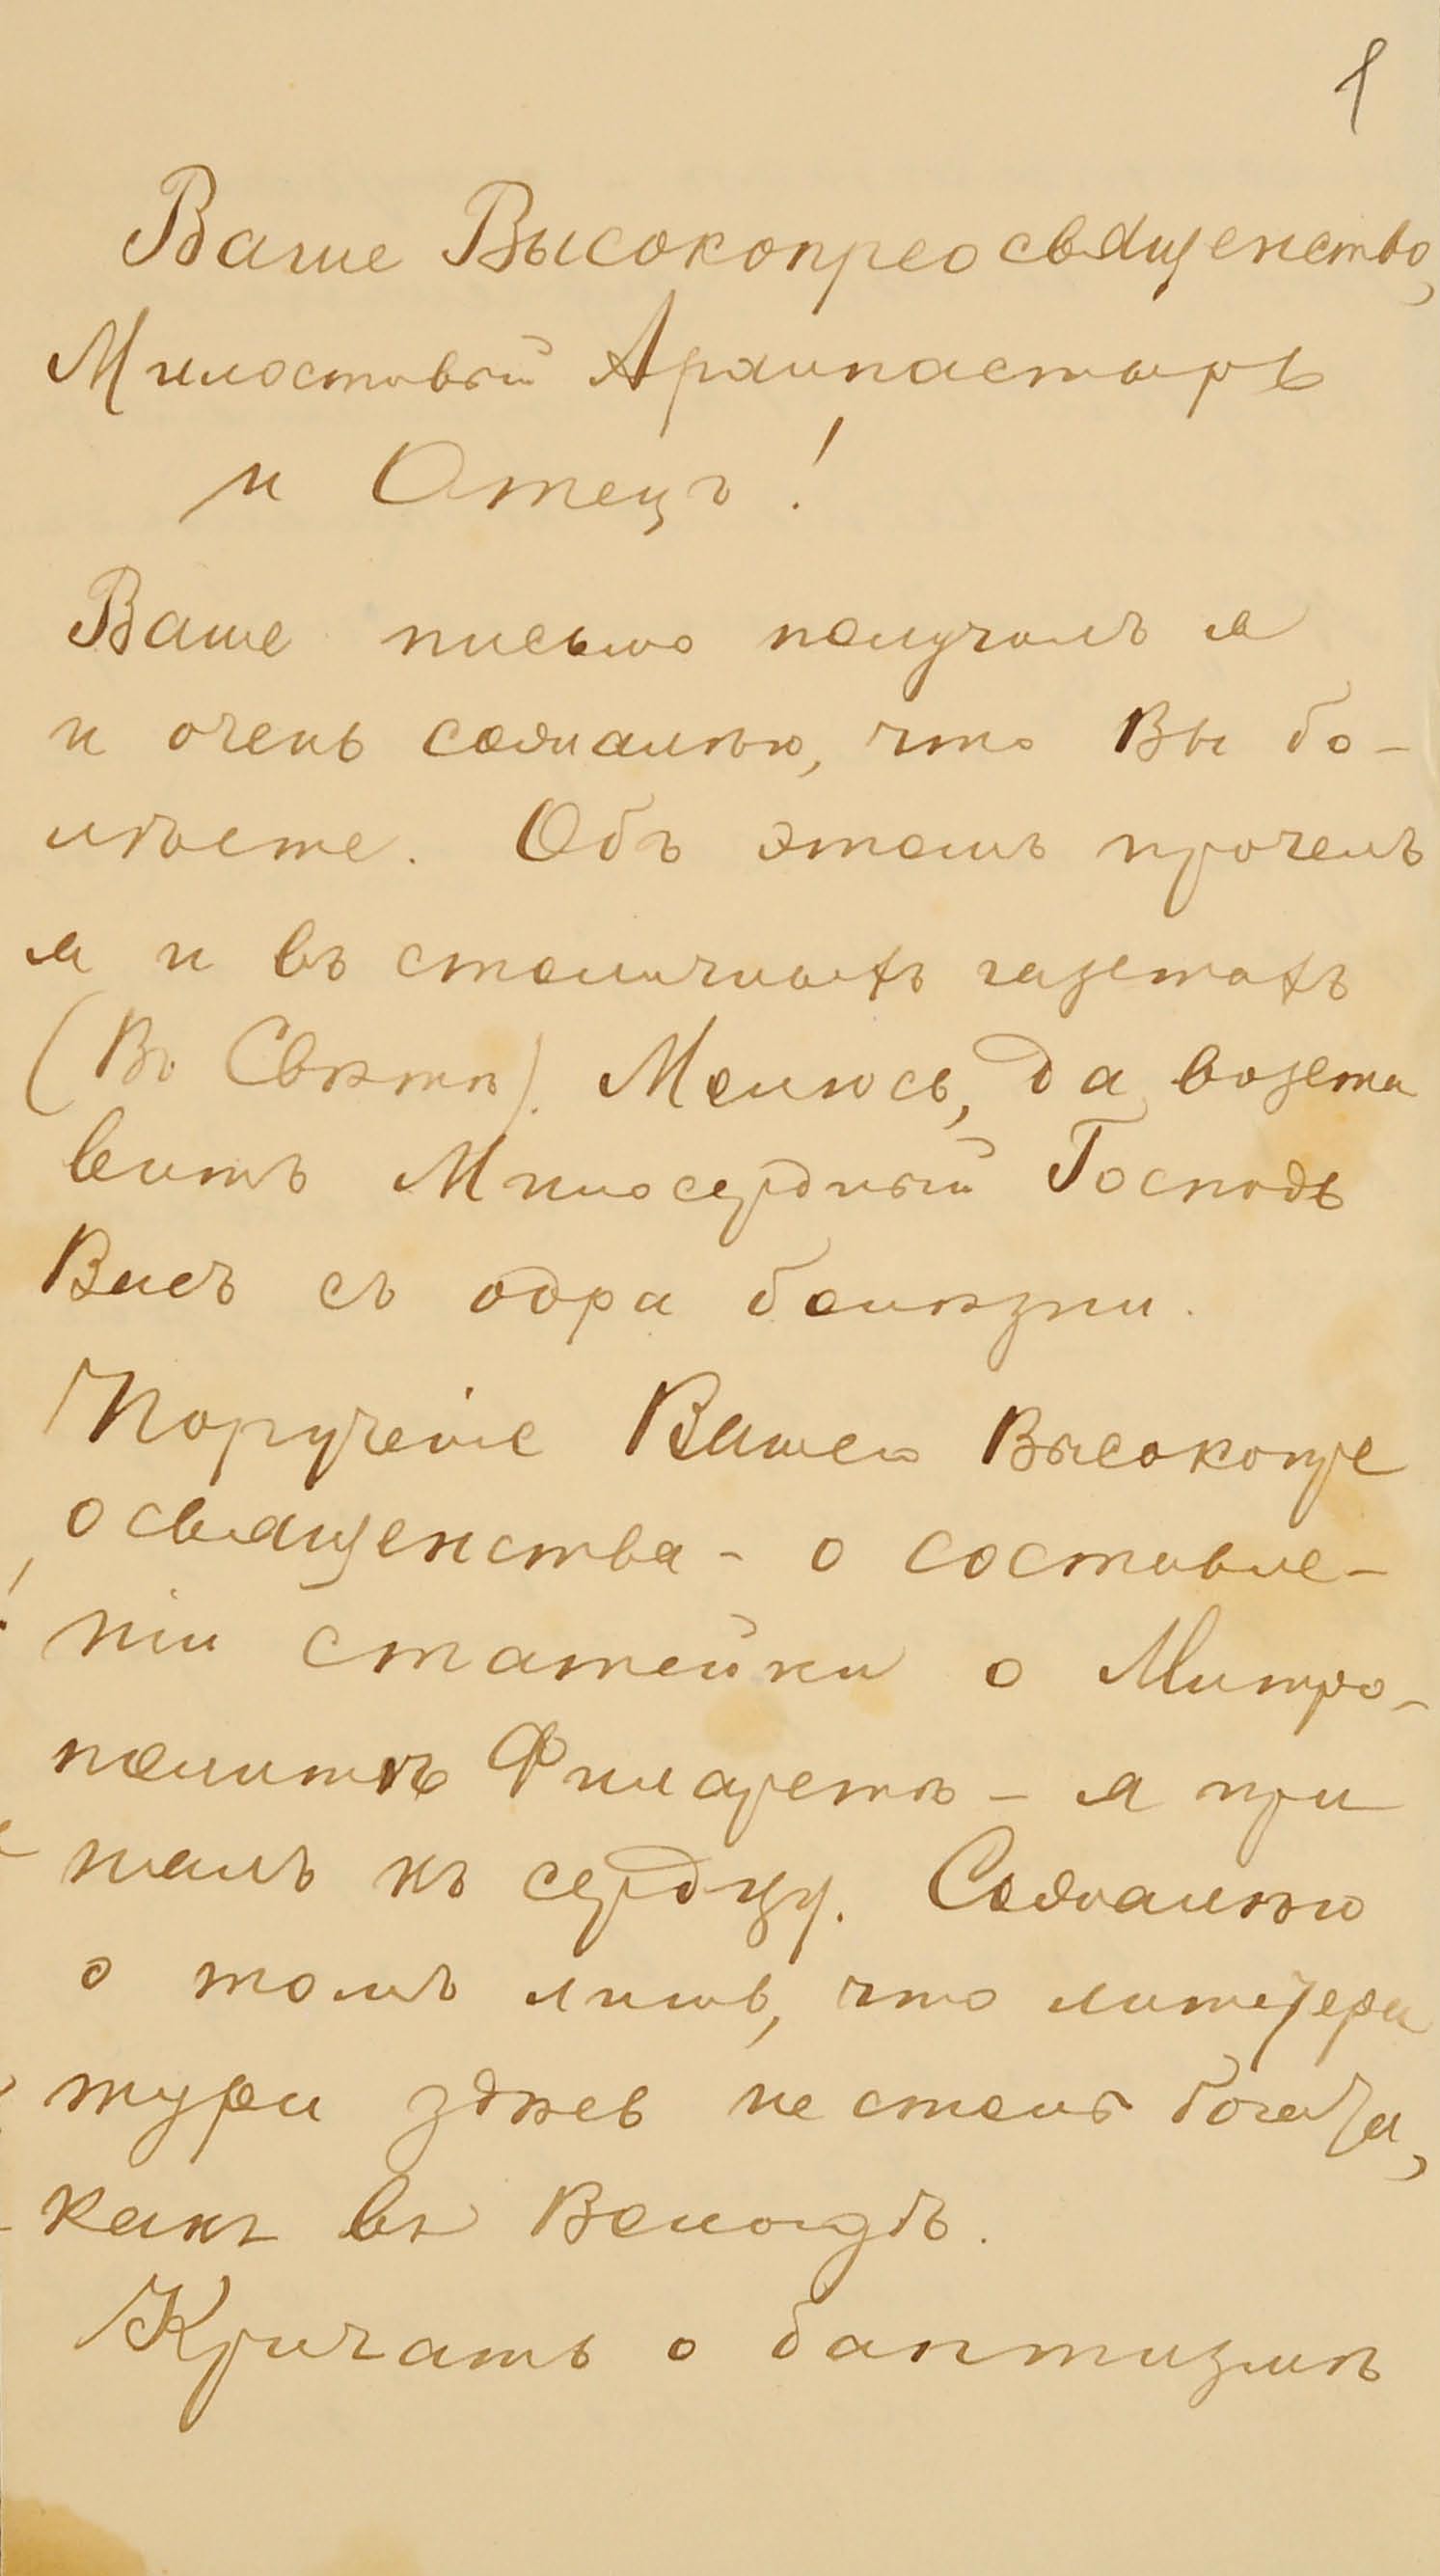 1
Ваше Высокопреосвященство,
Милостивый Архипастырь
и Отецъ!
Ваше письмо получилъ я
и очень сожалѣю, что Вы бо-
лѣете. Объ этомъ прочелъ
я и въ столичныхъ газетахъ
(Въ Свѣтѣ). Молюсь, да возста
витъ Милосердный Господь
Васъ съ одра болѣзни.
Порученіе Вашего Высокопре
освященства - о составле-
ніи статейки о Митро-
политѣ Филаретѣ - я при
нялъ къ сердцу. Сожалѣю
о томъ лишь, что литера
тура здѣсь не столь богата,
какъ въ Вологдѣ.
Кричатъ о баптизмѣ